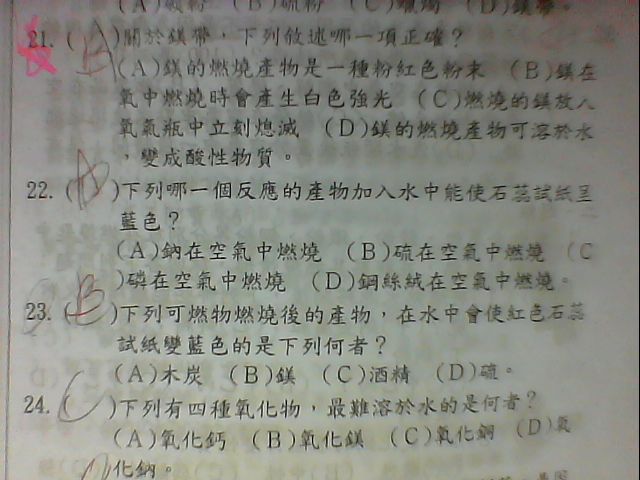 (A)硫粉 (B)硫粉 (C)蠟燭 (D)鎂帶。
21. (B)關於鎂帶，下列敘述哪一項正確？
(A)鎂的燃燒產物是一種粉紅色粉末 (B)鎂在
氧中燃燒時會產生白色強光 (C)燃燒的鎂放入
氧氣瓶中立刻熄滅 (D)鎂的燃燒產物可溶於水
，變成酸性物質。
22. (A)下列哪一個反應的產物加入水中能使石蕊試紙呈
藍色？
(A)鈉在空氣中燃燒 (B)硫在空氣中燃燒 (C
)磷在空氣中燃燒 (D)鋼絲絨在空氣中燃燒。
23. (B)下列可燃物燃燒後的產物，在水中會使紅色石蕊
試紙變藍色的是下列何者？
(A)木炭 (B)鎂 (C)酒精 (D)硫。
24. (C)下列有四種氧化物，最難溶於水的是何者？
(A)氧化鈣 (B)氧化鎂 (C)氧化銅 (D)氧
化鈉。